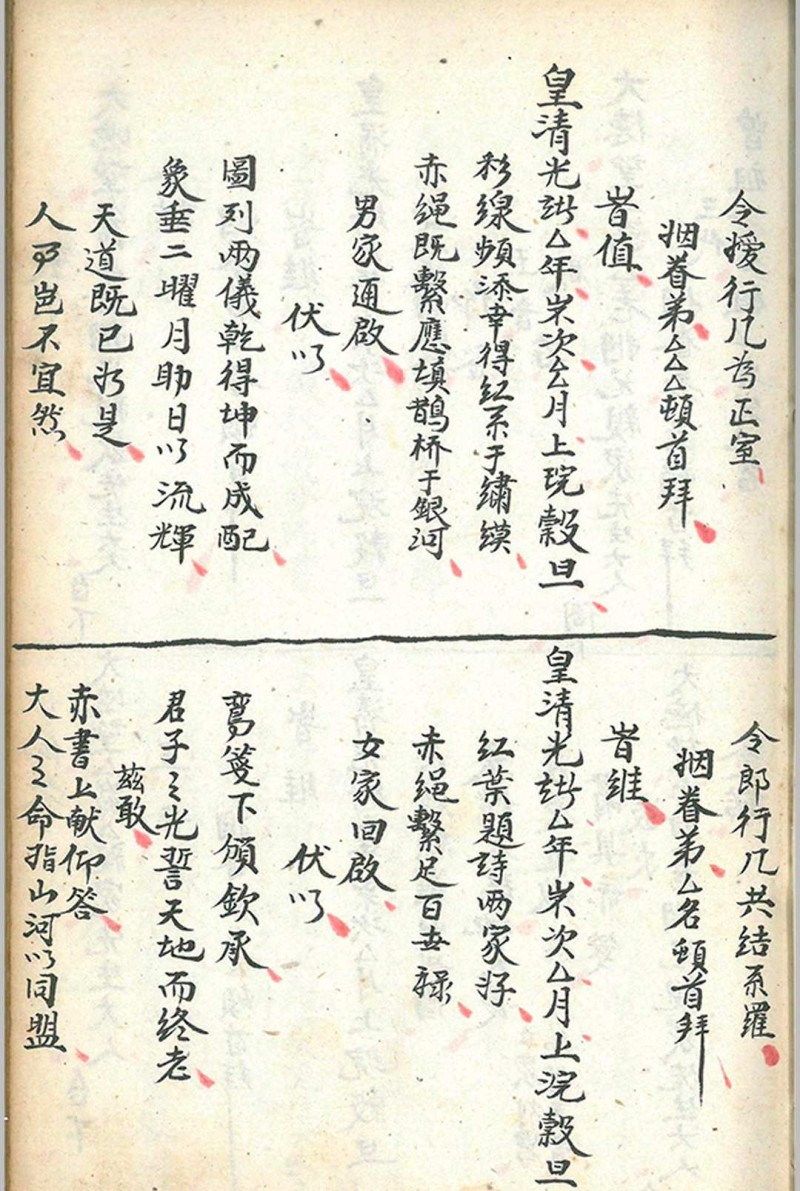 令嬡行几为正室
姻眷弟厶厶厶頓首拜
旹值
皇清光緒厶年岽次厶厶月上琓穀旦
彩線頻添幸得紅系于繡模
赤绳既繫應填鵲桥于銀河
男家通啟
伏以
圖列兩儀乾得坤而成配
象垂二曜月助日以流輝
天道既已如是
人事岂不宜然
令郎行几共结系羅
姻眷弟厶名頓首拜
旹維
皇清光緒厶年岽次厶月上浣穀旦
紅葉題詩两家好
赤绳繫足百世禄
女家回啟
伏以
鸾箋下頒欽承
君子之光誓天地而终老
茲敢
赤書上献仰答
大人之命指山河以同盟